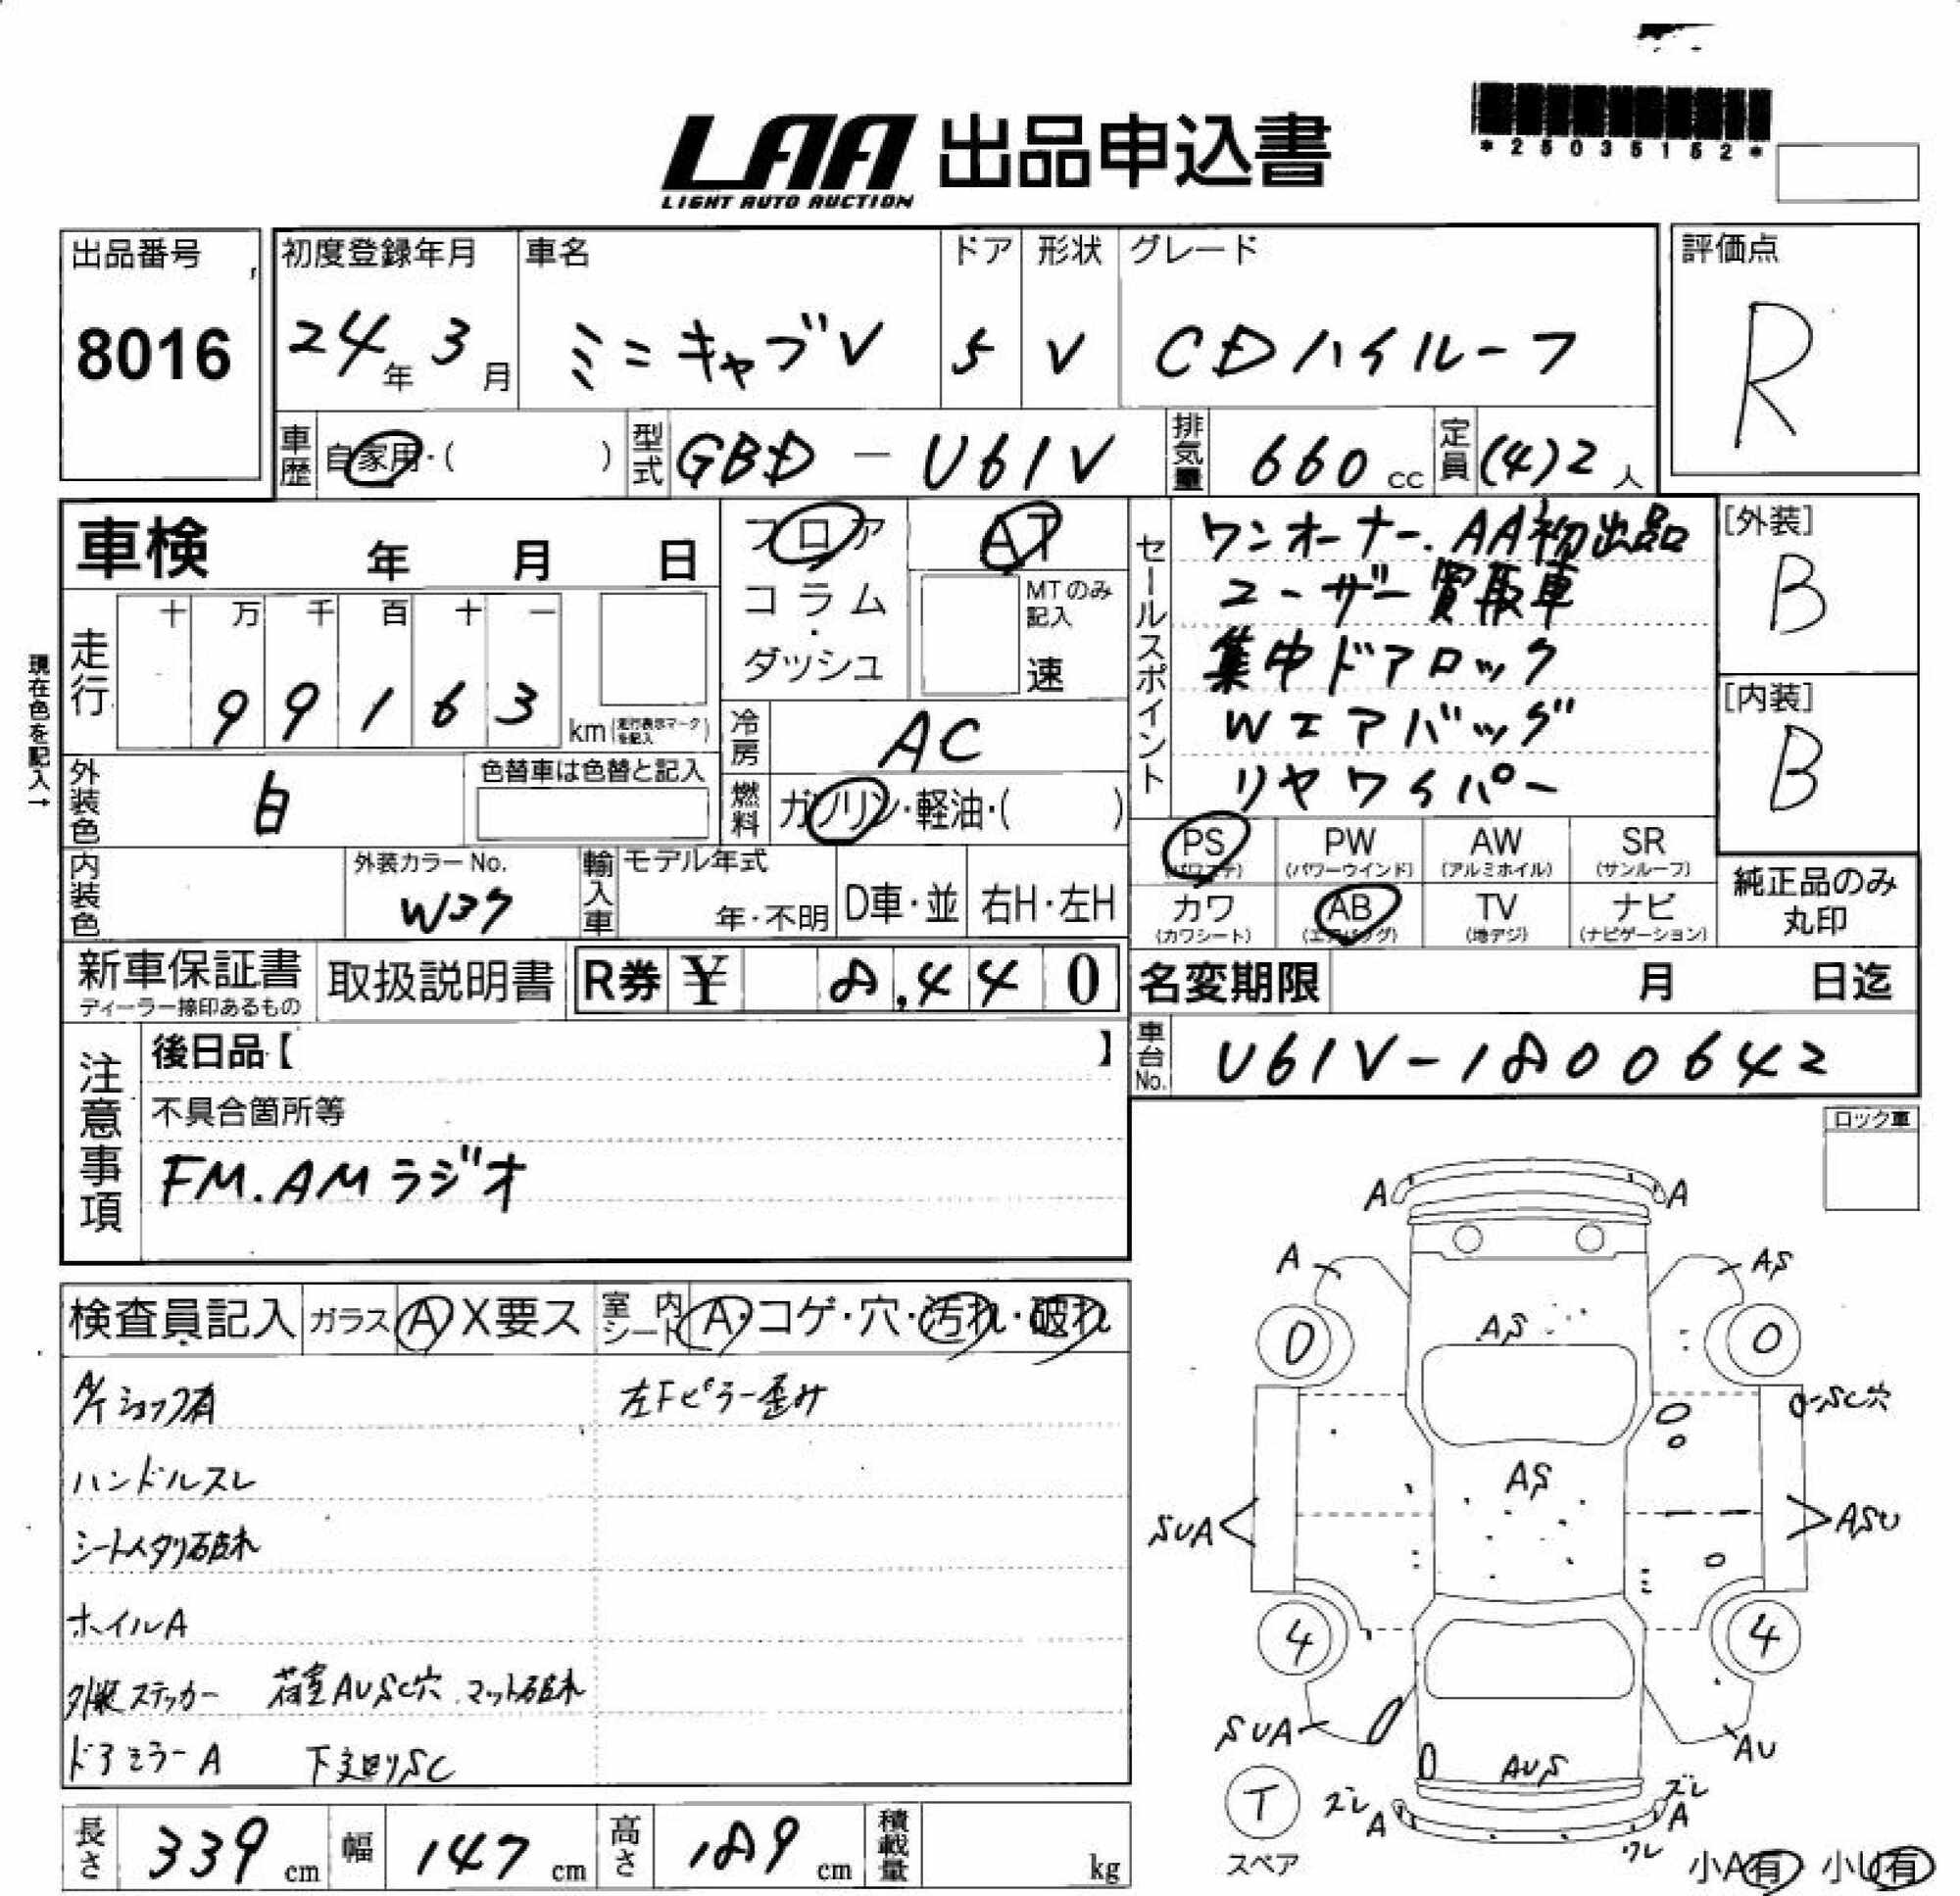 *25035152*
LAA 出品申込書
LIGHT AUTO AUCTION
出品番号
8016
初度登録年月
24年 3月
車名
ミニキャブV
ドア
5
形状
V
グレード
CDハイルーフ
評価点
R
車歴 自家用・( )
型式 GBD - U61V
排気量 660 cc
定員 (4)2 人
車検 年 月 日
フロア
コラム
・
ダッシュ
AT
MTのみ
記入
速
セールスポイント
ワンオーナー.AA初出品
ユーザー買取車
集中ドアロック
Wエアバッグ
リヤワイパー
[外装]
B
[内装]
B
現在色を記入→
走行
十 万 千 百 十 一
9 9 1 6 3
km(走行表示マークを記入)
冷房 AC
外装色 白
色替車は色替と記入
燃料 ガソリン・軽油・( )
PS (パワステ)
PW (パワーウインド)
AW (アルミホイル)
SR (サンルーフ)
カワ (カワシート)
AB (エアバッグ)
TV (地デジ)
ナビ (ナビゲーション)
純正品のみ
丸印
内装色
外装カラーNo.
W37
輸入車
モデル年式
年・不明
D車・並
右H・左H
新車保証書
ディーラー捺印あるもの
取扱説明書
R券 ¥ 8,440
名変期限 月 日迄
車台No. U61V-1800642
注意事項
後日品【 】
不具合箇所等
FM.AMラジオ
ロック車
検査員記入
ガラス A X要ス
室内シート A・コゲ・穴・汚れ・破れ
A/Tショック有
左Fピラー歪み
ハンドルスレ
シートヘタリ破れ
ホイルA
外装ステッカー 荷室AUSC穴.マット破れ
ドアミラーA 下廻りSC
A A
A AS
0 AS 0
SC穴
AS
SUA ASU
4 4
SUA AU
AUS
T
スペア
ズレ A
ズレ A
ワレ
小A有 小U有
長さ 339 cm
幅 147 cm
高さ 189 cm
積載量 kg